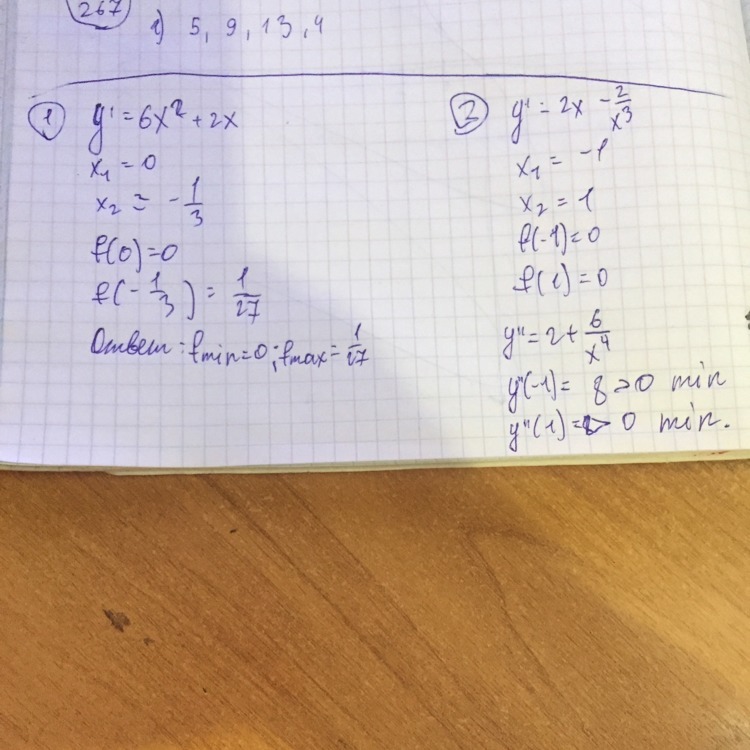 267
1) 5, 9, 13, 4
1
y' = 6x² + 2x
x₁ = 0
x₂ = -1/3
f(0) = 0
f(-1/3) = 1/27
Ответ: fmin = 0; fmax = 1/27
2
y' = 2x - 2/x³
x₁ = -1
x₂ = 1
f(-1) = 0
f(1) = 0
y'' = 2 + 6/x⁴
y''(-1) = 8 > 0 min
y''(1) = > 0 min.